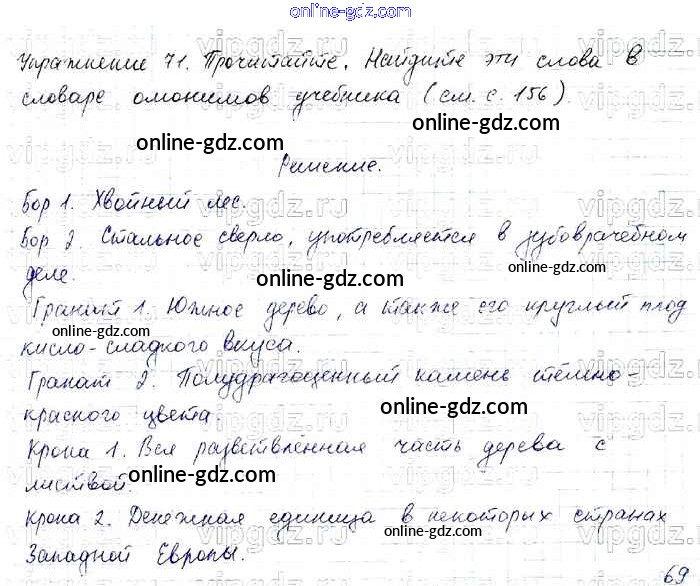 online-gdz.com
Упражнение 71. Прочитайте. Найдите эти слова в
словаре омонимов учебника (см. с. 156).
online-gdz.com
Решение.
Бор 1. Хвойный лес.
online-gdz.com
Бор 2. Стальное сверло, употребляется в зубоврачебном
деле.
online-gdz.com
Гранат 1. Южное дерево, а также его круглый плод
online-gdz.com
кисло-сладкого вкуса.
Гранат 2. Полудрагоценный камень тёмно-
красного цвета.
online-gdz.com
Крона 1. Вся разветвлённая часть дерева с
листвой.
online-gdz.com
Крона 2. Денежная единица в некоторых странах
Западной Европы.
online-gdz.com
69